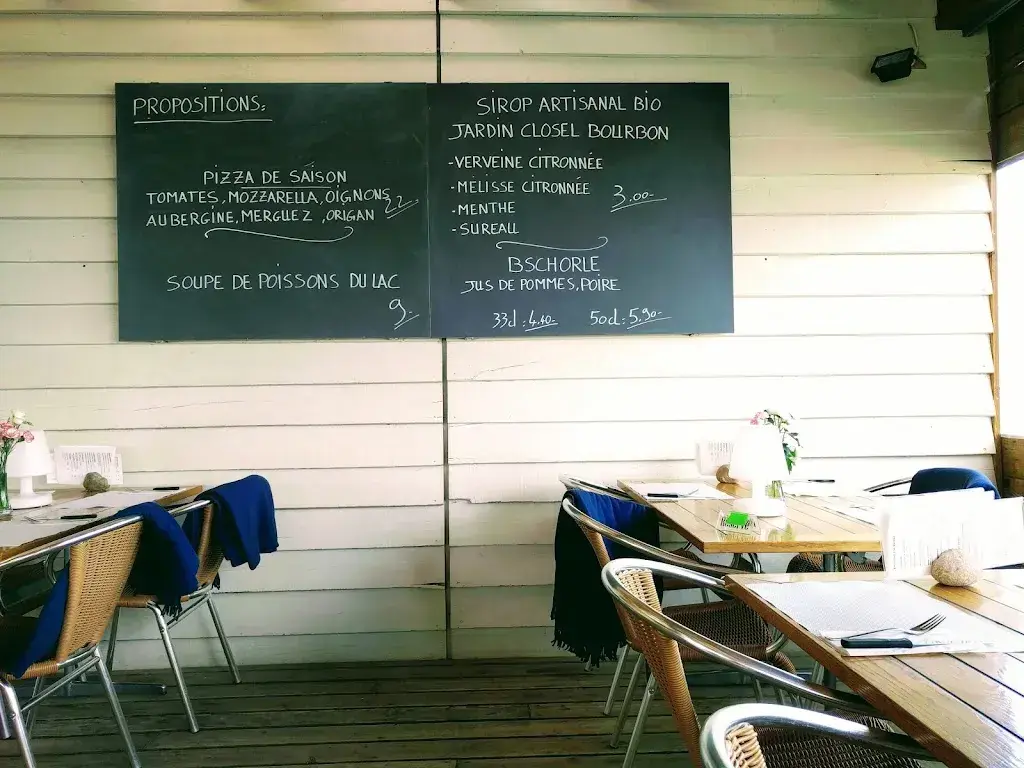 PROPOSITIONS:
PIZZA DE SAISON
TOMATES, MOZZARELLA, OIGNONS
AUBERGINE, MERGUEZ, ORIGAN
22.-
SOUPE DE POISSONS DU LAC
9.-
SIROP ARTISANAL BIO
JARDIN CLOSEL BOURBON
-VERVEINE CITRONNÉE
-MÉLISSE CITRONNÉE 3.00-
-MENTHE
-SUREAU
BSCHORLE
JUS DE POMMES, POIRE
33cl: 4.40- 50cl: 5.90-